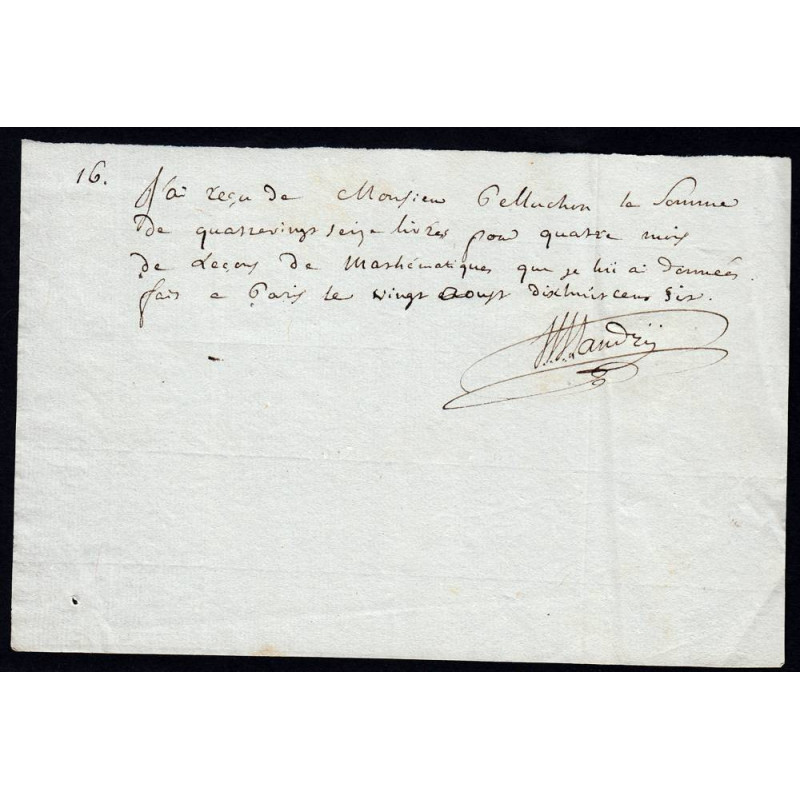 16.
J'ai reçu de Monsieur Pelluchon la Somme
de quatrevingt seize livres pour quatre mois
de Leçons de Mathématiques que je lui ai données.
fait a Paris le vingt Aoust dixhuit cent Six.